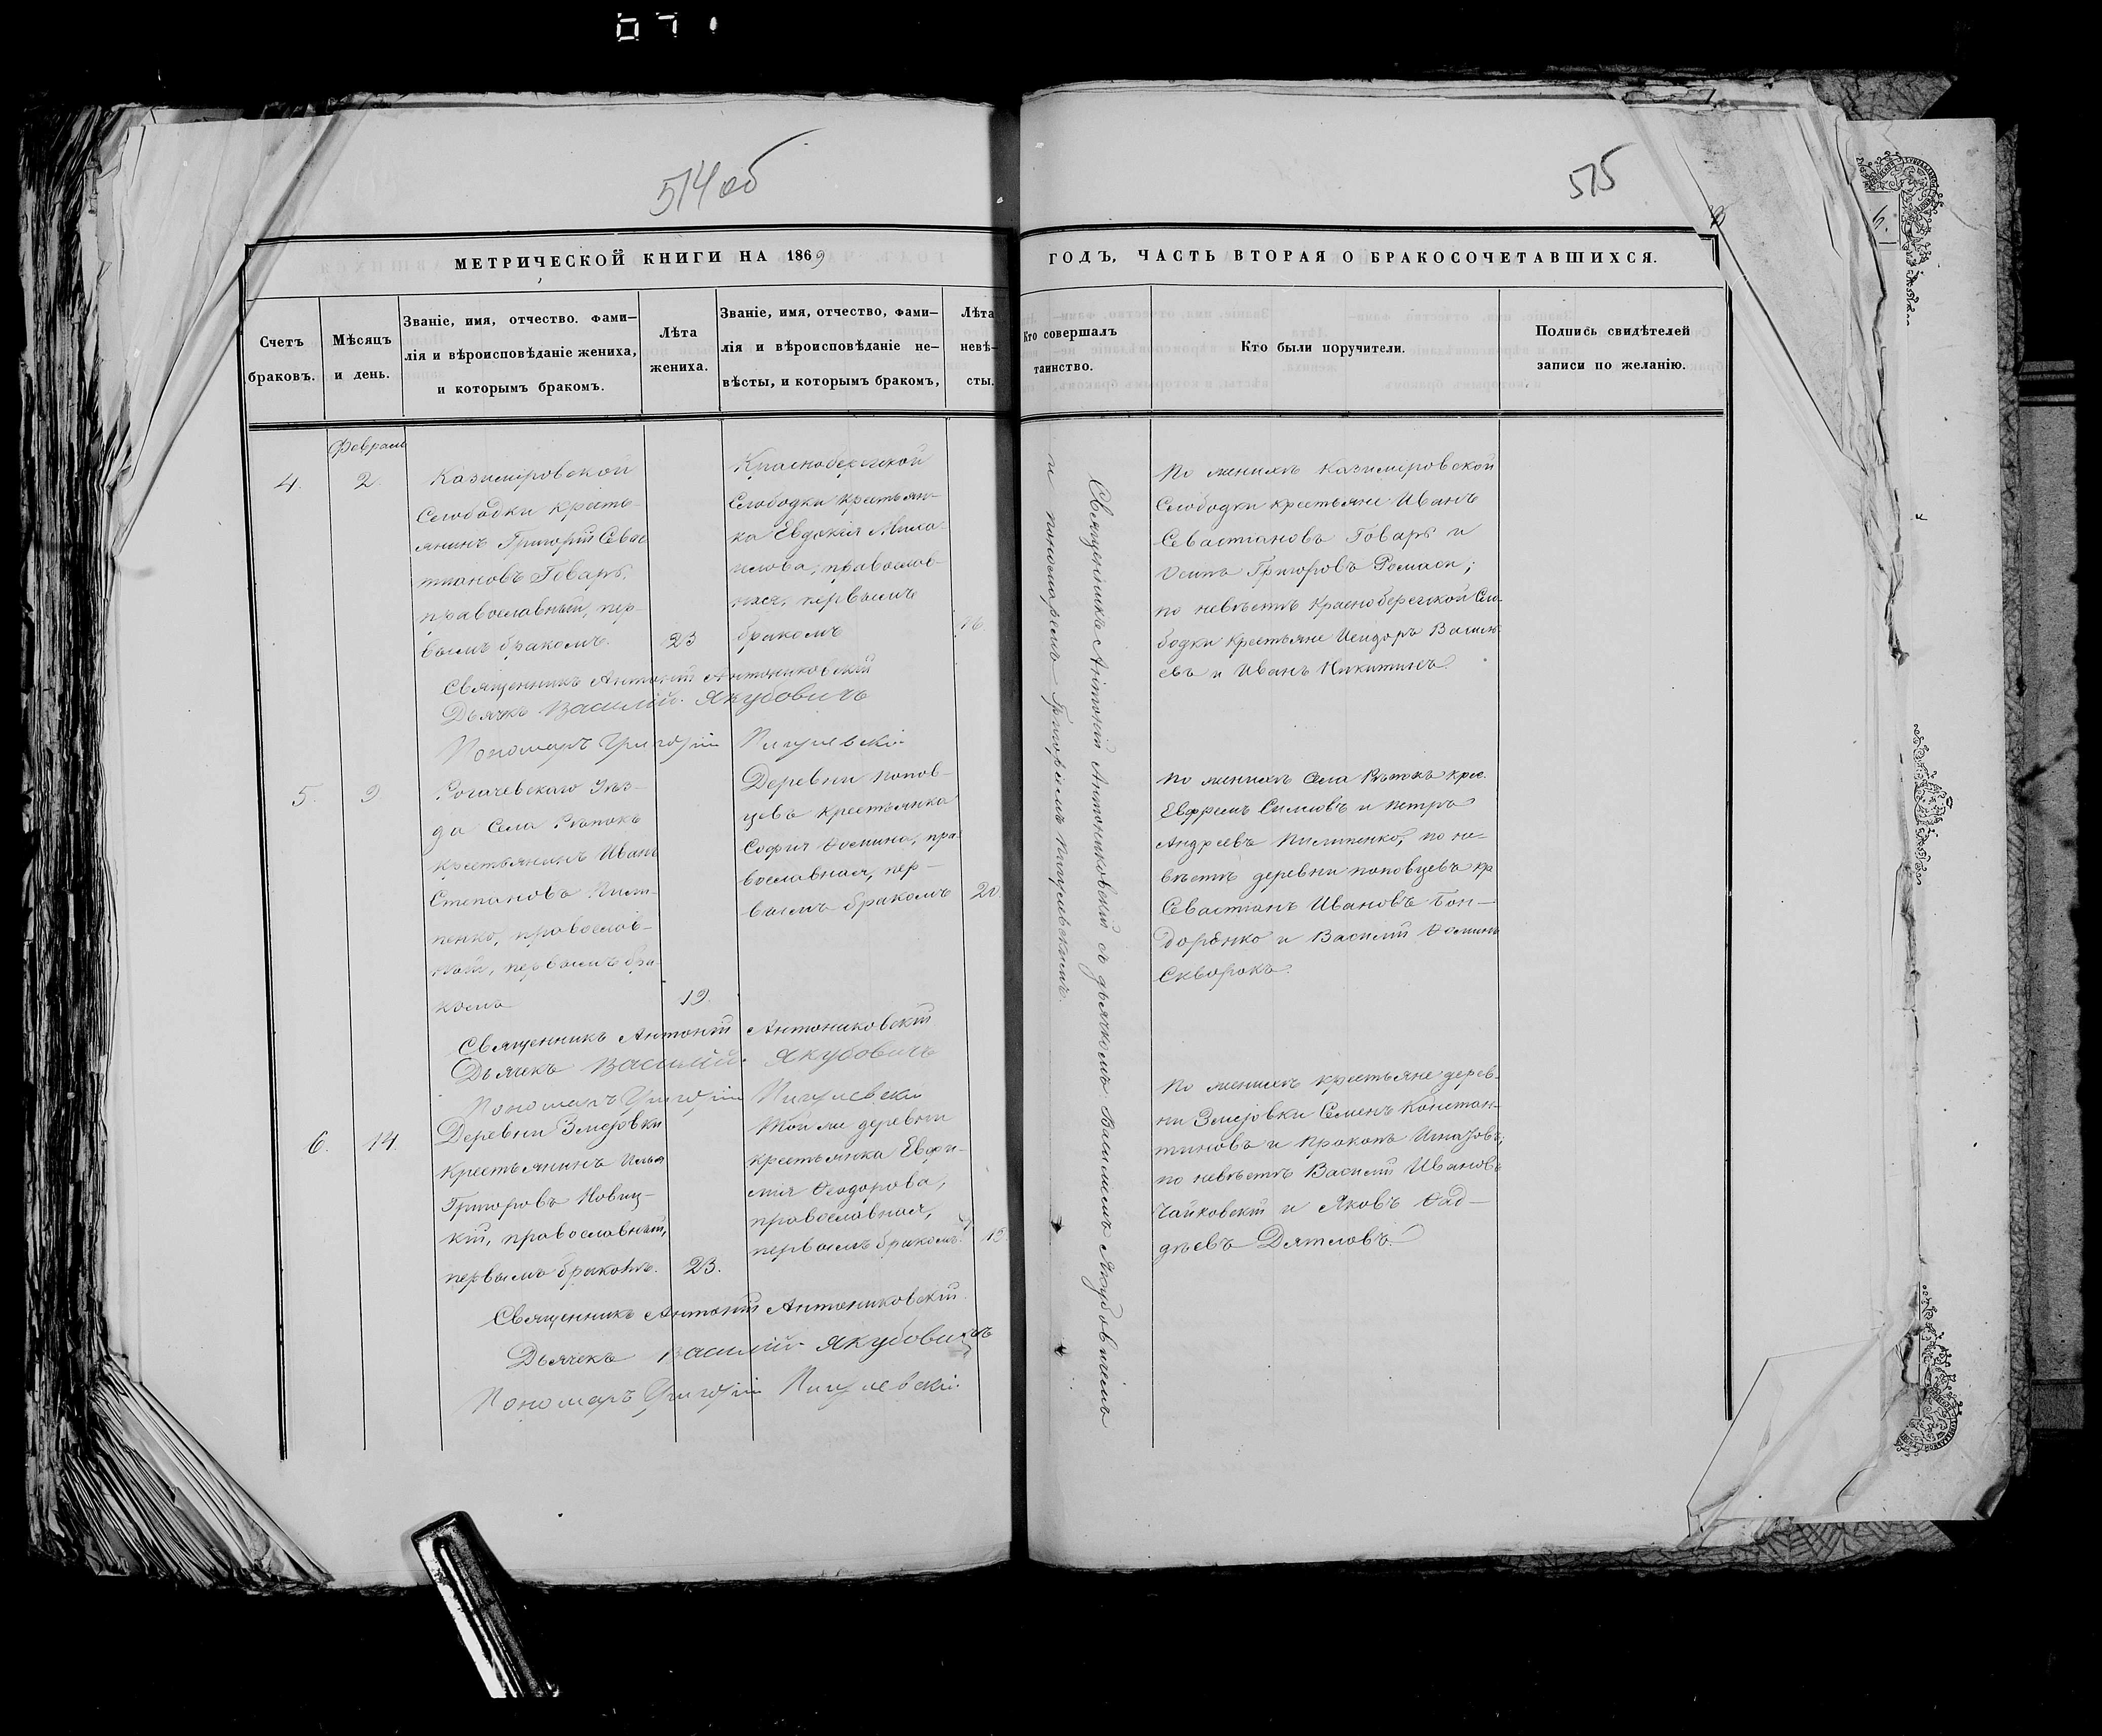 514 об
515
МЕТРИЧЕСКОЙ КНИГИ НА 1869
ГОДЪ, ЧАСТЬ ВТОРАЯ О БРАКОСОЧЕТАВШИХСЯ.
Счетъ
браковъ.
Мѣсяцъ
и день.
Званіе, имя, отчество. фами–
лія и вѣроисповѣданіе жениха,
и которымъ бракомъ.
Лѣта
жениха.
Званіе, имя, отчество, фами–
лія и вѣроисповѣданіе не–
вѣсты, и которымъ бракомъ,
Лѣта
невѣ–
сты.
Кто совершалъ
таинство.
Кто были поручители.
Подпись свидѣтелей
записи по желанію.
4.
Февраля
2
Казиміровской
Слободки кресть-
янинъ Григорій Севас
тіановъ Говаръ,
православный, пер-
вымъ бракомъ.
23
Краснобережской
Слободки крестьян-
ка Евдокія
православ-
ная, первымъ
бракомъ
16.
По женихѣ Казиміровской
Слободки крестьяне Иванъ
Севастіановъ Говаръ и
Осипъ Григоровъ
по невѣстѣ Краснобережской Сло
бодки крестьяне Исидоръ Василь
евъ и Иванъ Никитинъ.
Священникъ Антоній Антониковскій
Дьячкъ Василій Якубовичъ
Пономарь Григорій
5.
9.
Рогачевскаго Уѣз-
да Села
крестьянинъ Иванъ
Степановъ
пенко, православ-
ный, первымъ бра
комъ
19.
Деревни Попов-
цевъ крестьянка
Софія Ѳомина, пра
вославная, пер-
вымъ бракомъ
20.
По женихѣ Села крес.
Евфремъ и Петръ
Андреевъ по не-
вѣстѣ деревни Поповцевъ кр
Севастіанъ Ивановъ Бон-
даренко и Василій Ѳоминъ
Скворокъ.
Священникъ Антоній Антониковскій
Дьячекъ Василій Якубовичъ
Пономарь Григорій
6.
14.
Деревни Змеровки
Крестьянинъ Илья
Григоровъ Новиц-
кій, православный,
первымъ бракомъ.
23.
Той же деревни
крестьянка Евфи-
мія Ѳеодорова,
православная,
первымъ бракомъ.
По женихѣ крестьяне дерев-
ни Змеровки Семенъ Констан-
тиновъ и
по невѣстѣ Василій Ивановъ
Чайковскій и Яковъ Ѳад-
дѣевъ Дятловъ.
Священникъ Антоній Антониковскій.
Дьячекъ Василій Якубовичъ
Пономарь Григорій
Священникъ Антоній Антониковскій съ дьячкомъ Василіемъ Якубовичемъ
и пономаремъ Григоріемъ